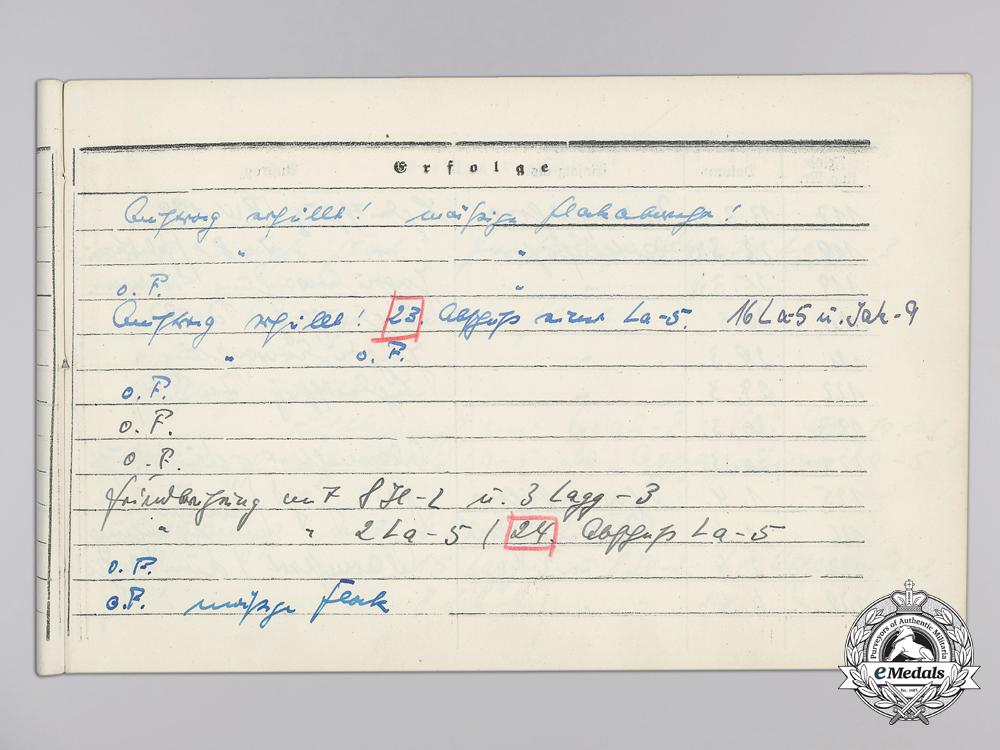 Erfolge
Auftrag erfüllt! mäßige Flakabwehr!
" "
o. F. "
Auftrag erfüllt! 23. Abschuß einer La-5. 16 La-5 u. Jak-9
" o. F.
o. F.
o. F.
o. F.
Feindberührung mit 8 Il-2 u. 3 Lagg-3
" " 2 La-5 / 24. Abschuß La-5
o. F.
o. F. mäßige Flak
Purveyors of Authentic Militaria
eMedals